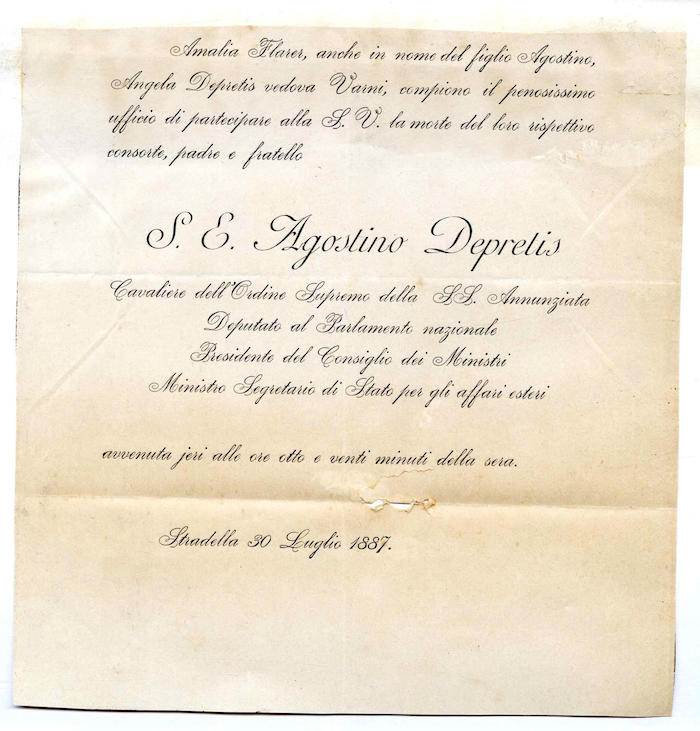 Amalia Flarer, anche in nome del figlio Agostino,
Angela Depretis vedova Varni, compiono il penosissimo
ufficio di partecipare alla S. V. la morte del loro rispettivo
consorte, padre e fratello
S. E. Agostino Depretis
Cavaliere dell'Ordine Supremo della SS. Annunziata
Deputato al Parlamento nazionale
Presidente del Consiglio dei Ministri
Ministro Segretario di Stato per gli affari esteri
avvenuta jeri alle ore otto e venti minuti della sera.
Stradella 30 Luglio 1887.